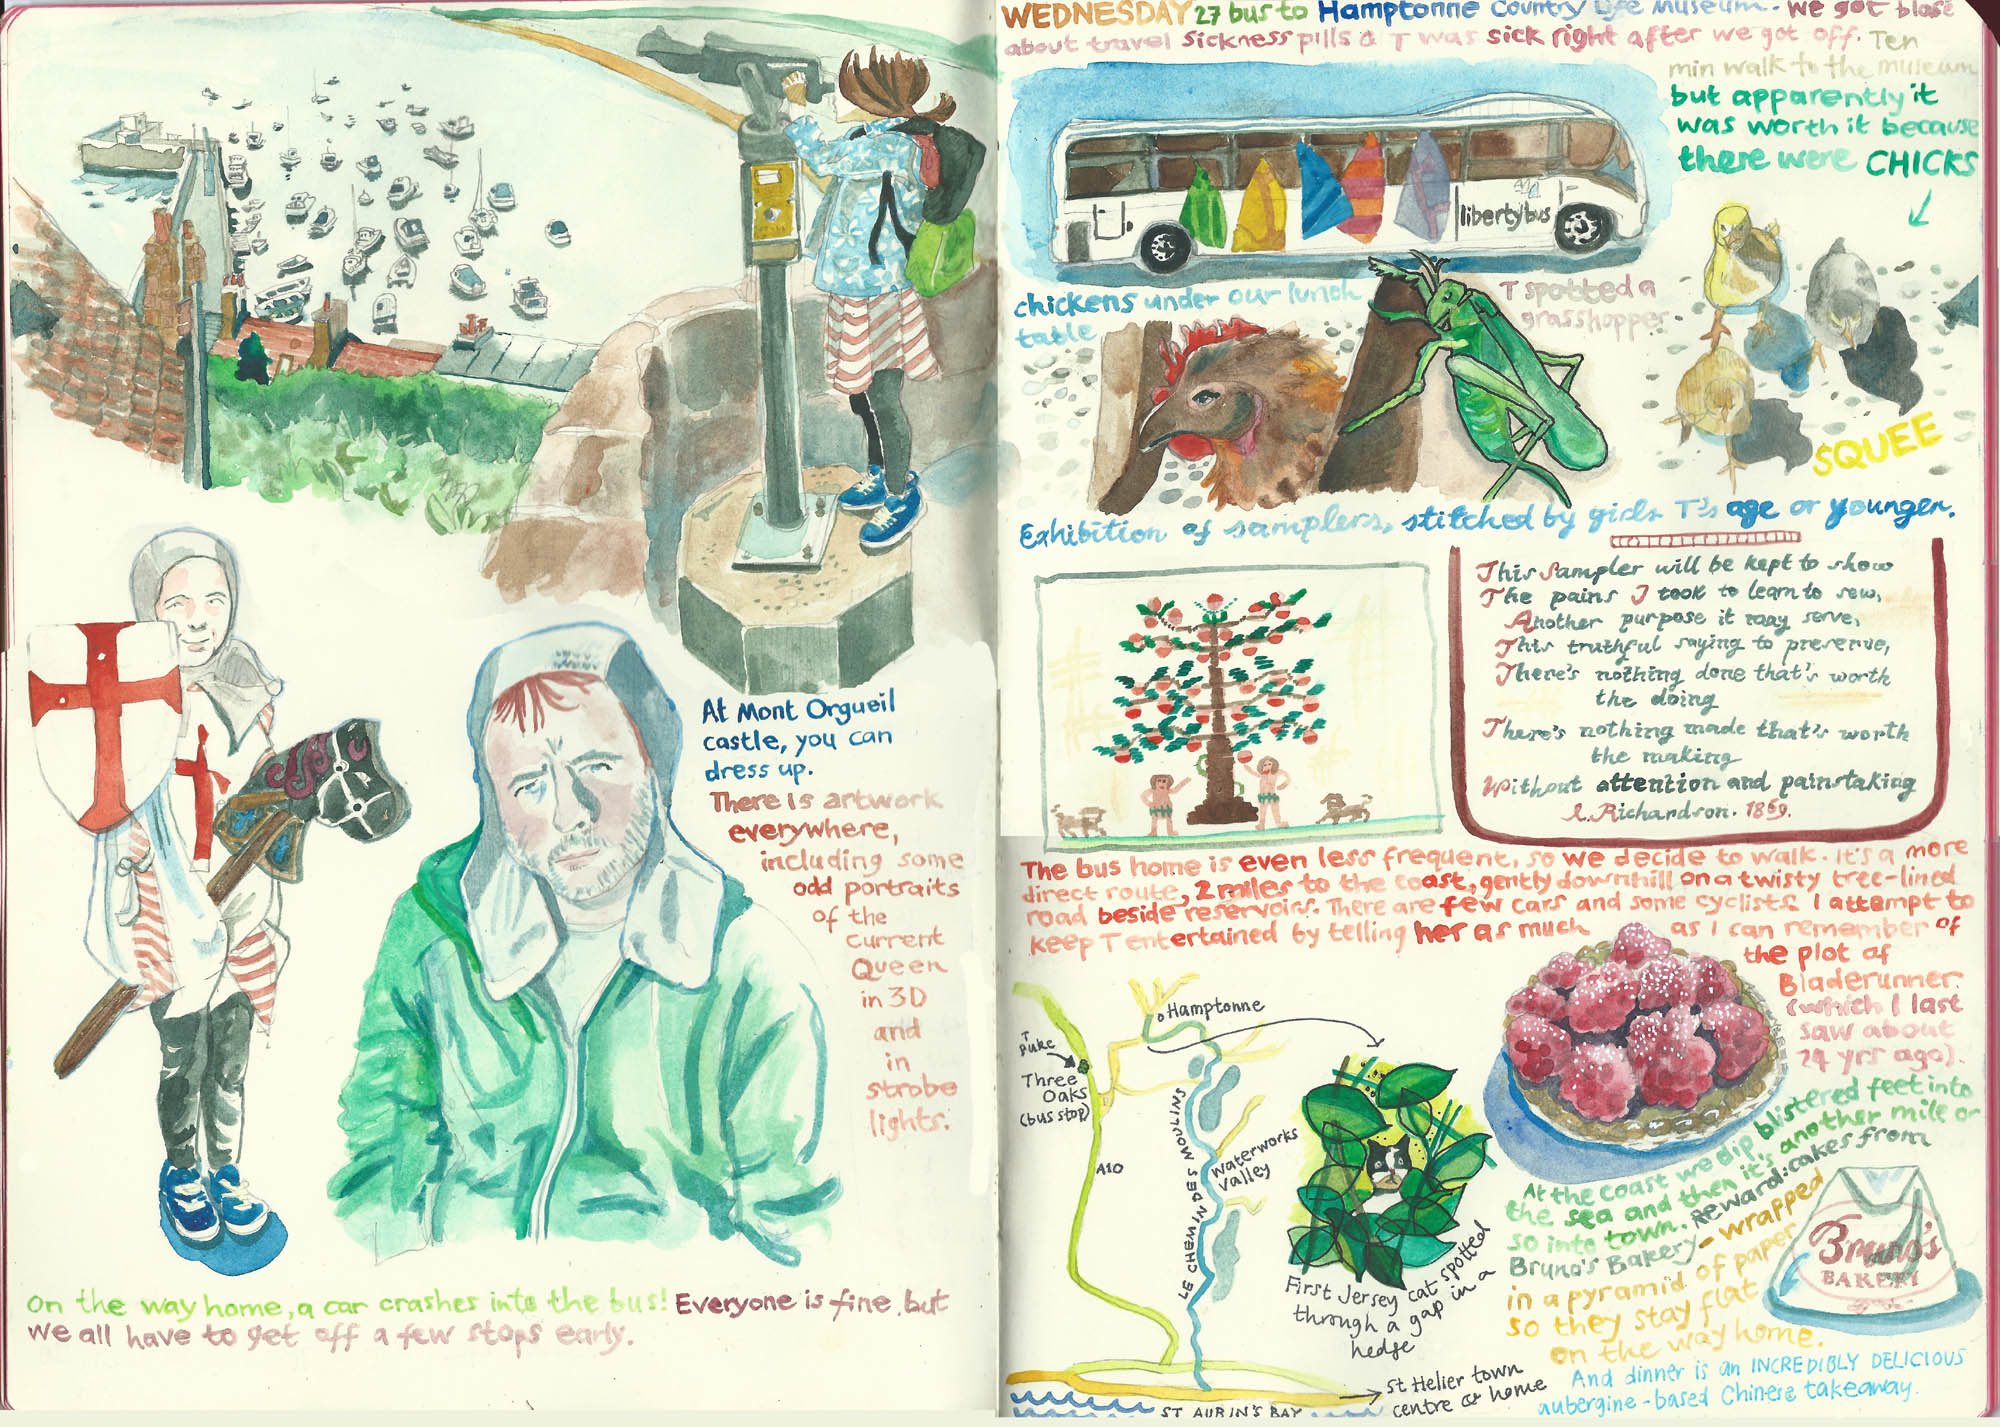 At Mont Orgueil
castle, you can
dress up.
There is artwork
everywhere,
including some
odd portraits
of the
current
Queen
in 3D
and
in
strobe
lights.
On the way home, a car crashes into the bus! Everyone is fine, but
we all have to get off a few stops early.
WEDNESDAY 27 bus to Hamptonne Country Life Museum. We got blasé
about travel sickness pills & T was sick right after we got off. Ten
min walk to the museum
but apparently it
was worth it because
there were CHICKS
libertybus
chickens under our lunch
table
T spotted a
grasshopper
SQUEE
Exhibition of samplers, stitched by girls T's age or younger.
This Sampler will be kept to show
The pains I took to learn to sew,
Another purpose it may serve,
This truthful saying to preserve,
There's nothing done that's worth
the doing
There's nothing made that's worth
the making
Without attention and painstaking
L. Richardson. 1869.
The bus home is even less frequent, so we decide to walk. It's a more
direct route, 2 miles to the coast, gently downhill on a twisty tree-lined
road beside reservoirs. There are few cars and some cyclists. I attempt to
keep T entertained by telling her as much as I can remember of
the plot of
Bladerunner.
(which I last
saw about
24 yrs ago).
Hamptonne
T
Puke
Three
Oaks
(bus stop)
A10
LE CHEMIN DES MOULINS
Waterworks
Valley
First Jersey cat spotted
through a gap in a
hedge
St Helier town
centre & home
ST AUBIN'S BAY
At the coast we dip blistered feet into
the sea and then it's another mile or
so into town. Reward: cakes from
Bruno's Bakery - wrapped
in a pyramid of paper
so they stay flat
on the way home.
Bruno's
BAKERY
And dinner is an INCREDIBLY DELICIOUS
aubergine-based Chinese takeaway.